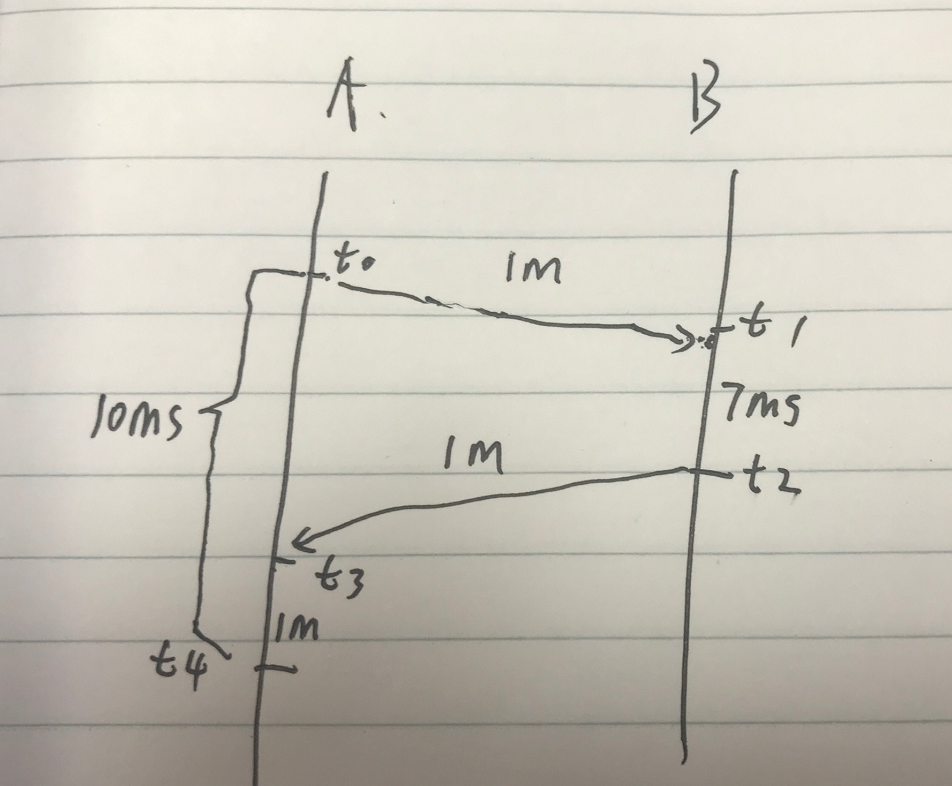 A. B
t0 1M
t1
10ms 7ms
1M
t2
t3
1M
t4